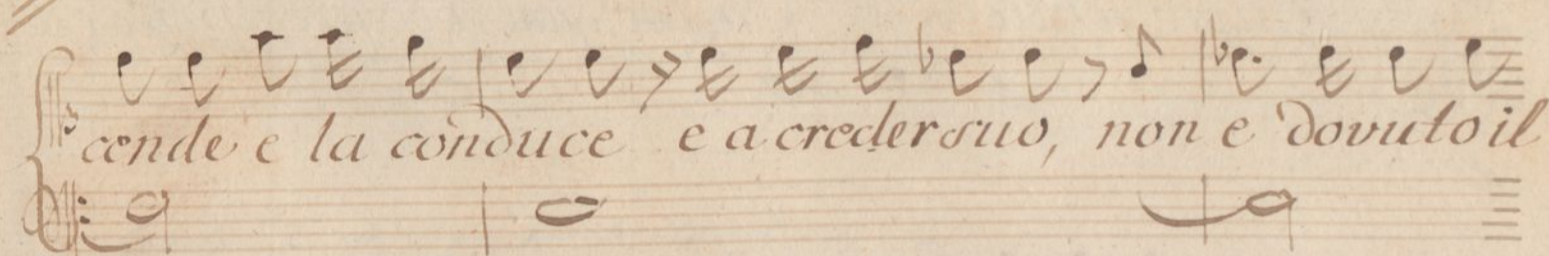 cende e la conduce e a creder suo, non e dovuto il